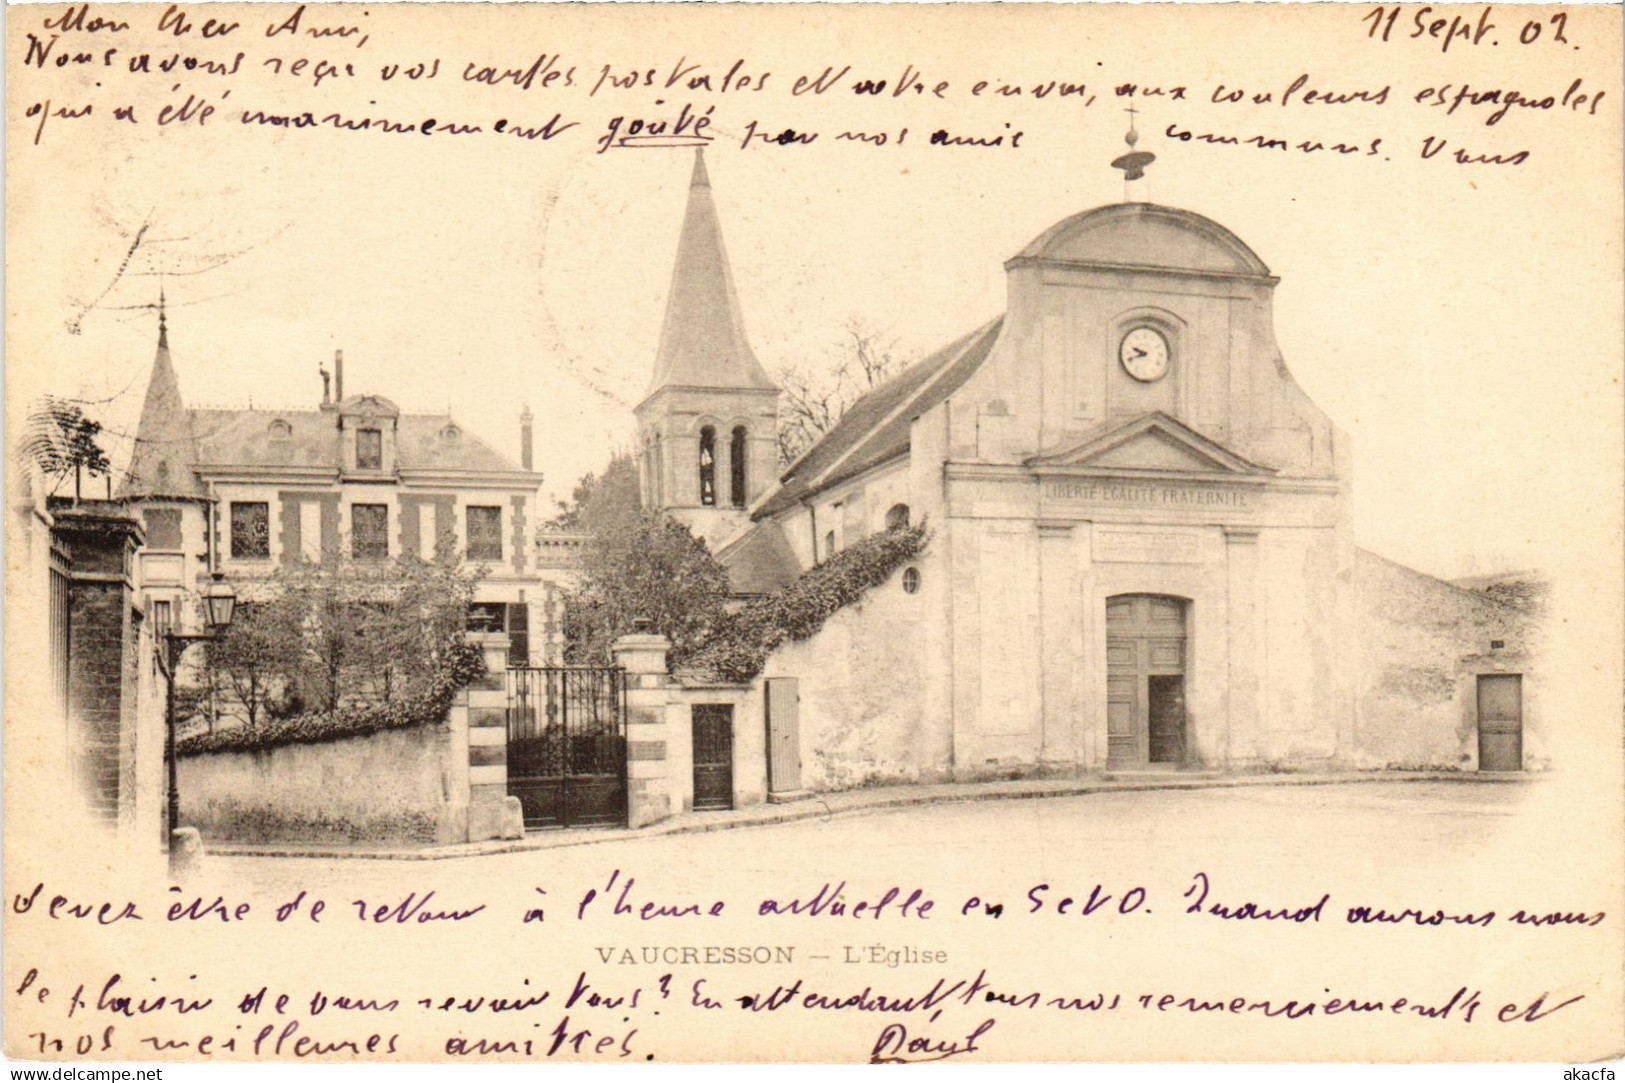 11 Sept. 02.
Mon Cher Ami,
Nous avons reçu vos cartes postales et votre envoi, aux couleurs espagnoles
qui a été unanimement goûté par nos amis communs. Vous
LIBERTÉ EGALITÉ FRATERNITÉ
devez être de retour à l'heure actuelle en S et O. Quand aurons nous
VAUCRESSON – L'Église
le plaisir de vous revoir tous? En attendant, tous nos remerciements et
nos meilleures amitiés. Paul
akacfa